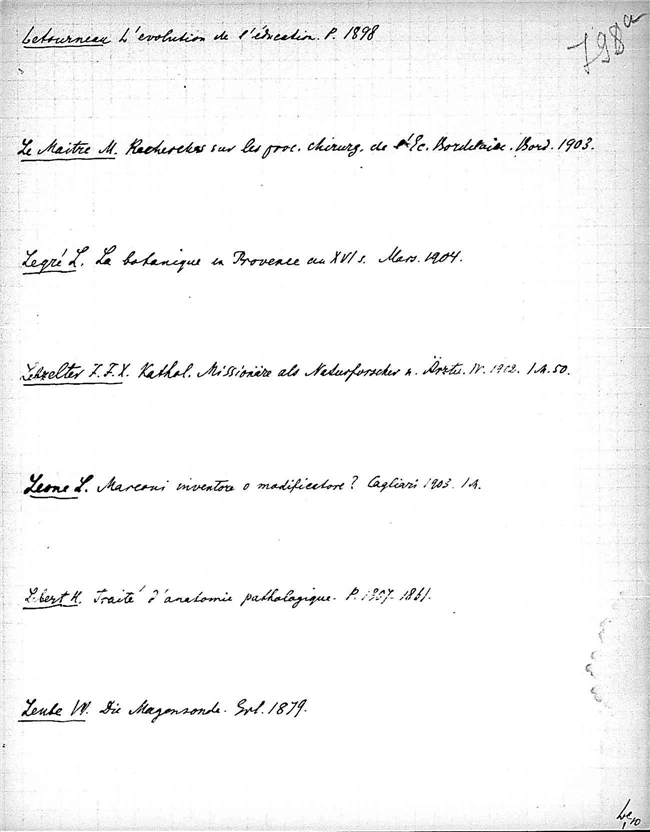 Letourneau L'évolution de l'éducation. P. 1898
798a
Le Maitre M. Recherches sur les proc. chirurg. de l'Ec. Bordelaise. Bord. 1903.
Legré L. La botanique en Provence au XVI s. Mars. 1904.
Lebzelter F.F.X. Kathol. Missionäre als Naturforscher u. Ärzte. W. 1902. 1 M. 50.
Leone L. Marconi inventore o modificatore? Cagliari 1903. 1 M.
Lebert H. Traité d'anatomie pathologique. P. 1857-1861.
Leube W. Die Magensonde. Erl. 1879.
Le, 10